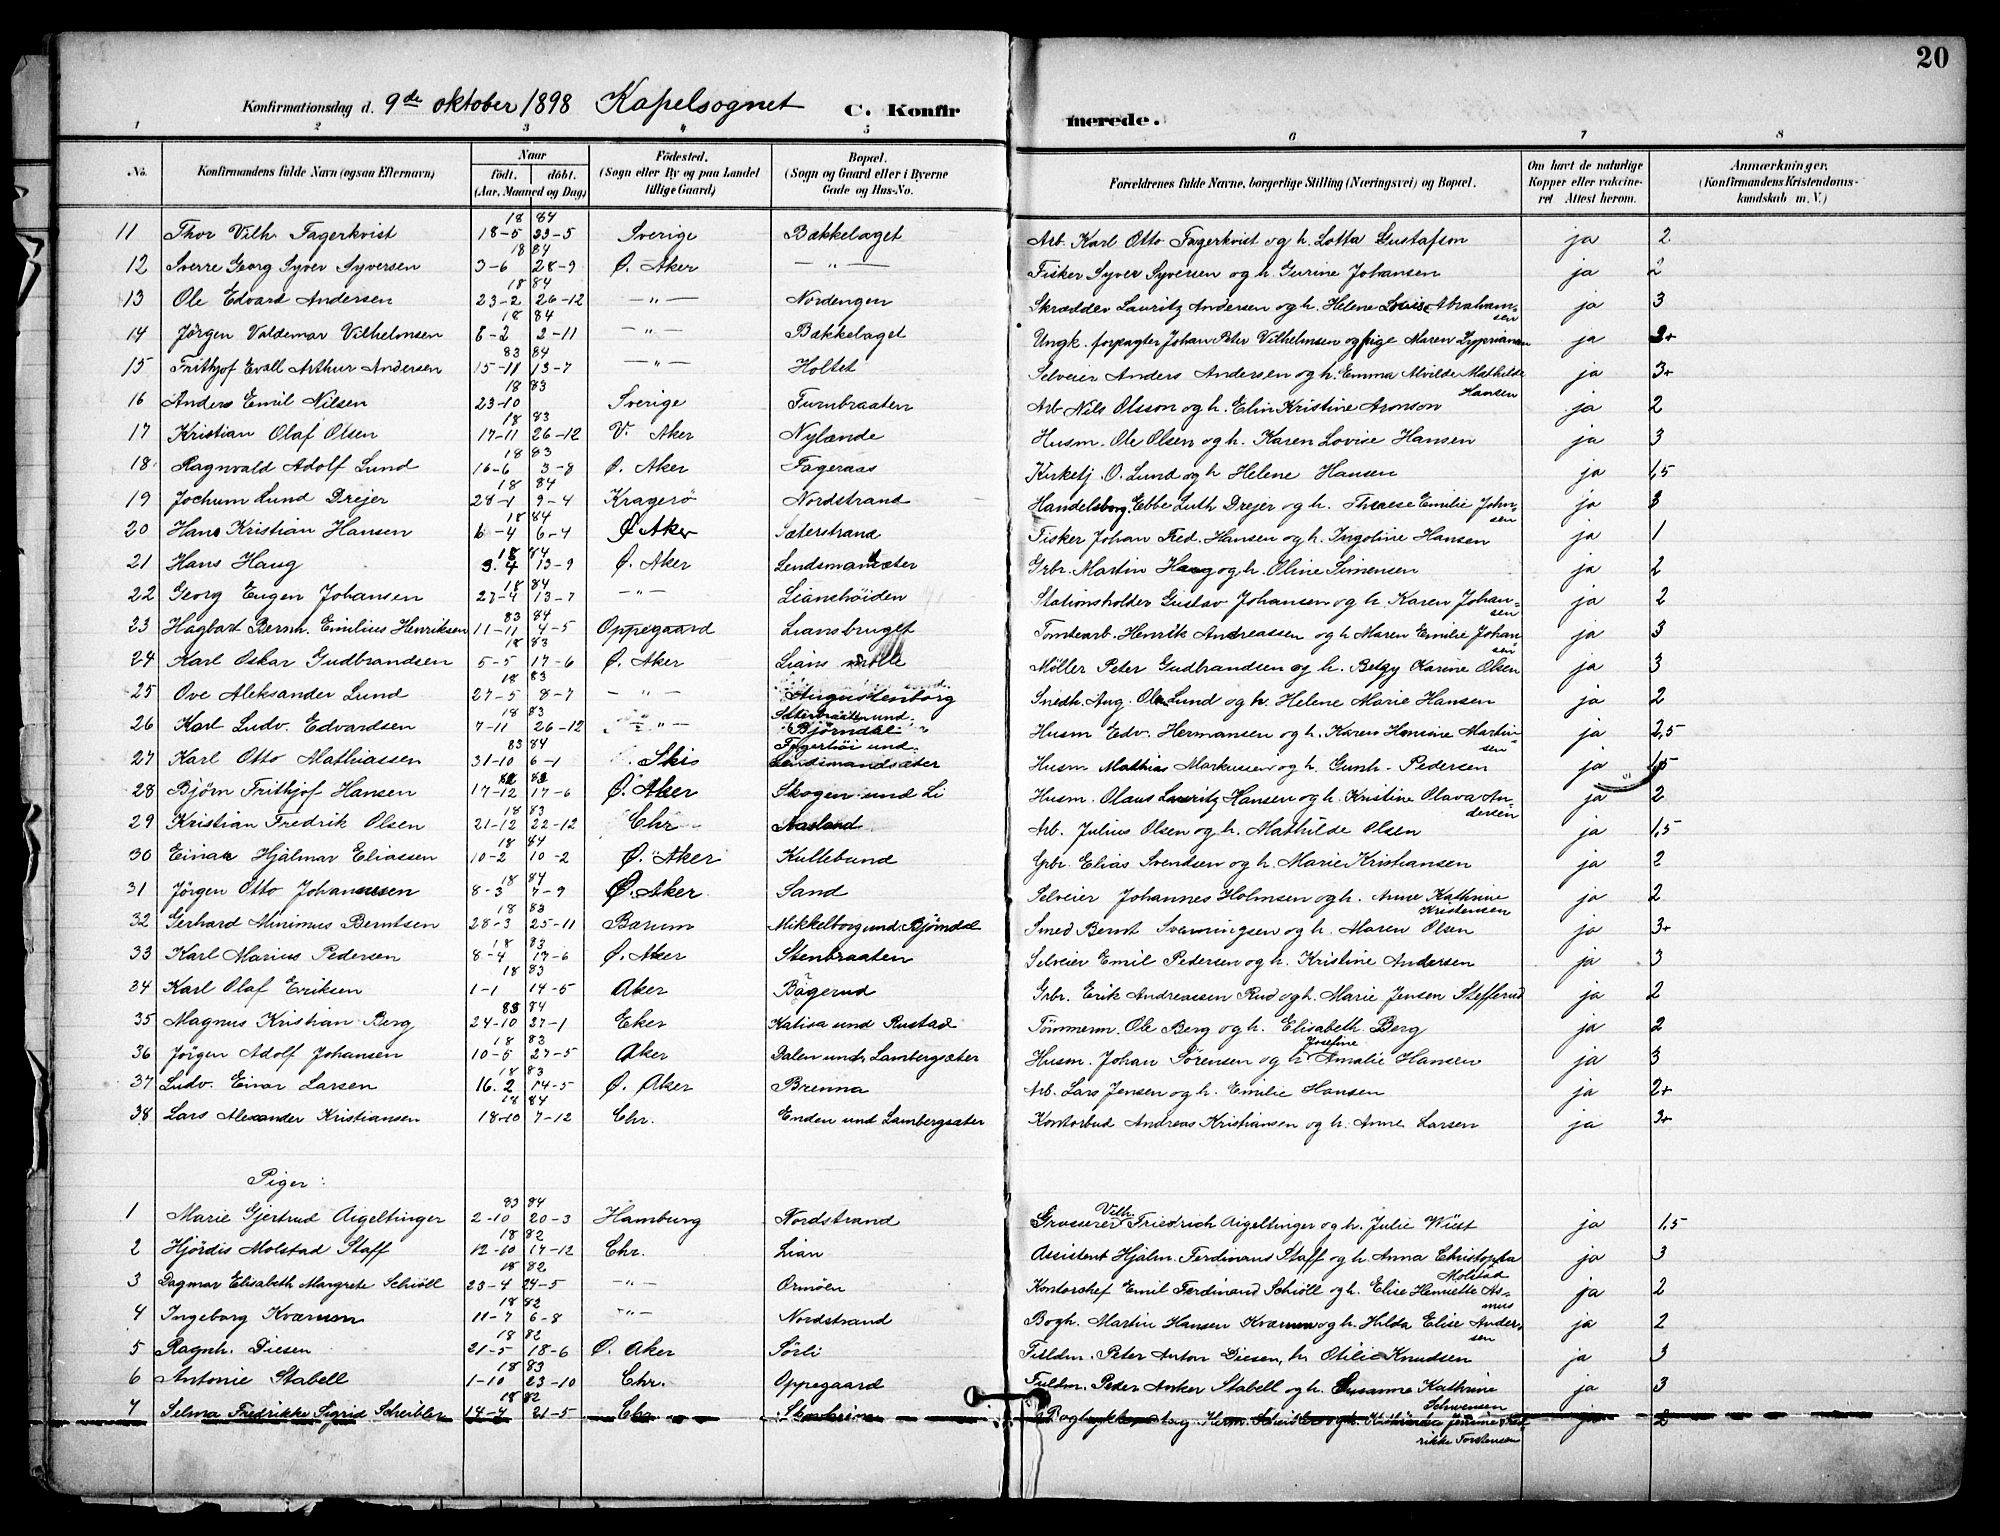 20
Konfirmationsdag d. 9de oktober 1898 Kapelsognet C. Konfirmerede.
1 2 3 4 5 6 7 8
No. Konfirmandens fulde Navn (ogsaa Efternavn) Naar født. døbt. (Aar, Maaned og Dag) Fødested. (Sogn eller By og paa Landet tillige Gaard) Bopæl. (Sogn og Gaard eller i Byerne Gade og Hus-No. Forældrenes fulde Navne, borgerlige Stilling (Næringsvei) og Bopæl. Om havt de naturlige Kopper eller vakcineret. Attest herom. Anmærkninger. (Konfirmandens Kristendomskundskab m. V.)
11 Thor Vilh. Fagerkvist 18 84 18-5 23-5 Sverige Bækkelaget Arb. Karl Otto Fagerkvist og h. Lotta Gustafson ja 2
12 Sverre Georg Syver Syversen 18 84 3-6 28-9 Ø. Aker — " — Fisker Syver Syversen og h. Gurine Johansen ja 2
13 Ole Edvard Andersen 18 84 23-2 26-12 — " — Nordengen Skrædder Lauritz Andersen og h. Helene Lovise Abrahamsen ja 3
14 Jörgen Valdemar Vilhelmsen 18 84 8-2 2-11 — " — Bækkelaget Ungk. forpagter Johan Peter Vilhelmsen og pige Maren Zyprianen ja
15 Frithjof Evall Arthur Andersen 83 84 15-11 13-7 — " — Holtet Selveier Anders Andersen og h. Emma Alvilde Mathilde Hansen ja 3+
16 Anders Emil Nilsen 18 83 23-10 Sverige Furubraaten Arb Nils Olsson og h. Elin Kristine Aronson ja 2
17 Kristian Olaf Olsen 18 83 17-11 26-12 V. Aker Nylænde Husm. Ole Olsen og h. Karen Lovise Hansen ja 3
18. Ragnvald Adolf Lund 18 83 16-6 3-8 Ø. Aker Fageraas Kirketj. O. Lund og h Helene Hansen ja 1,5
19 Jochum Lund Drejer 18 84 28-1 9-4 Kragerö Nordstrand Handelsborg. Ebbe Luth Drejer og h. Therese Emilie Johnsen ja 3
20 Hans Kristian Hansen 18 84 6-4 6-4 Ø Aker Sæterstrand Fisker Johan Fred. Hansen og h. Ingoline Hansen ja 1
21 Hans Haug 18 84 3.4 13-9 Ø. Aker Lendsmandsæter Grbr. Martin Haug og h. Oline Simensen ja 2
22 Georg Eugen Johansen 18 84 27-4 13-7 — " — Lianshöiden Stationsholder Gustav Johansen og h. Karen Johansen ja 2
23 Hagbart Bernh. Emilius Henriksen 83 84 11-11 4-5 Oppegaard Liansbruget Tomtearb. Henrik Andreassen og h Maren Emilie Johansen ja 3
24 Karl Oskar Gudbrandsen 18 83 5-5 17-6 Ø. Aker Lians mölle Møller Peter Gudbrandsen og h. Betgy Karine Olsen ja 3
25 Ove Aleksander Lund 18 83 27-5 8-7 — " — Augustenborg Snedk. Aug. Ole Lund og h. Helene Marie Hansen ja 2
26 Karl Ludv. Edvardsen 18 83 7-11 26-12 — " — Sæterbraaten und. Björndal Husm Edv. Hermansen og h. Karen Hansine Martinsen ja 2,5
27 Karl Otto Mathiassen 83 84 31-10 6-1 Skis Fagerhöi und. Lendsmandsæter Husm Mathias Markussen og h. Gunh. Pedersen ja
28 Björn Frithjof Hansen 82 17-12 17-6 Ø. Aker Skogen und Li Husm. Olaus Lauritz Hansen og h. Kristine Olava Andersen ja 2
29 Kristian Fredrik Olsen 18 83 21-12 22-12 Chr Aasland Arb. Julius Olsen og h. Mathilde Olsen ja 1,5
30 Einar Hjalmar Eliassen 18 84 10-2 10-2 Ø. Aker Kullebund Grbr. Elias Svendsen og h. Marie Kristiansen ja 2
31 Jörgen Otto Johannesen 18 84 8-3 7-9 Ø. Aker Sand Selveier Johannes Holmsen og h. Anne Kathrine Kristensen ja 2
32 Gerhard Minimus Berntsen 18 83 28-3 25-11 Bærum Mikkelborg und. Björndal Smed Bernt Svenningsen og h. Maren Olsen ja 3+
33 Karl Marius Pedersen 18 83 8-4 17-6 Ø. Aker Stenbraaten Selveier Emil Pedersen og h. Kristine Andersen ja 3
34 Karl Olaf Eriksen 18 83 1-1 14-5 Aker Bögerud Grbr. Erik Andreassen Rud og h. Marie Jensen Stefferud ja 2
35 Magnus Kristian Berg 83 84 24-10 27-1 Eker Katisa und Rustad Tömmerm. Ole Berg og h. Elisabeth Berg ja 2
36 Jörgen Adolf Johansen 18 83 10-5 27-5 Aker Dalen und. Lambergsæter Husm. Johan Sörensen og h Josefine Amalie Hansen ja 3
37 Ludv. Einar Larsen 18 83 16.2 14-5 Ø. Aker Brenna Arb. Lars Jensen og h. Emilie Hansen ja 2+
38 Lars Alexander Kristiansen 18 84 18-10 7-12 Chr. Enden und Lambergsæter Kontorbud Andreas Kristiansen og h. Anne Larsen ja 3+
Piger:
1 Marie Gjertrud Aigeltinger 83 84 2-10 20-3 Hamburg Nordstrand Grosserer Vilh. Friedrich Aigeltinger og h. Julie Wüst ja 1,5
2 Hjördis Molstad Staff 18 82 12-10 17-12 Chr. Lian Assistent Hjalm. Ferdinand Staff og h. Anna Christopha Molstad ja 3
3 Dagmar Elisabeth Margrete Schiöll 18 82 23-4 24-5 — " — Ormöen Kontorchef Emil Ferdinand Schiöll og h. Elise Henriette Asmus ja 2
4 Ingeborg Kværum 18 82 11-7 6-8 — " — Nordstrand Bogh. Martin Hansen Kværnum og h. Hilda Elise Andersen ja 2
5 Ragnh. Diesen 18 82 21-5 18-6 Ø. Aker Sörli Fuldm. Peter Anton Diesen, h. Otilie Knudsen ja 3
6 Antonie Stabell 18 83 1-10 23-10 Chr. Oppegaard Fuldm. Peder Anker Stabell og h. Susanne Kathrine Schwensen ja 3
7 Selma Fredrikke Sigrid Scheibler 18 82 14-4 21-5 Chr Bogtykker Aug. Herm. Scheibler og h. Jensine Fredrikke Torstensen ja 2